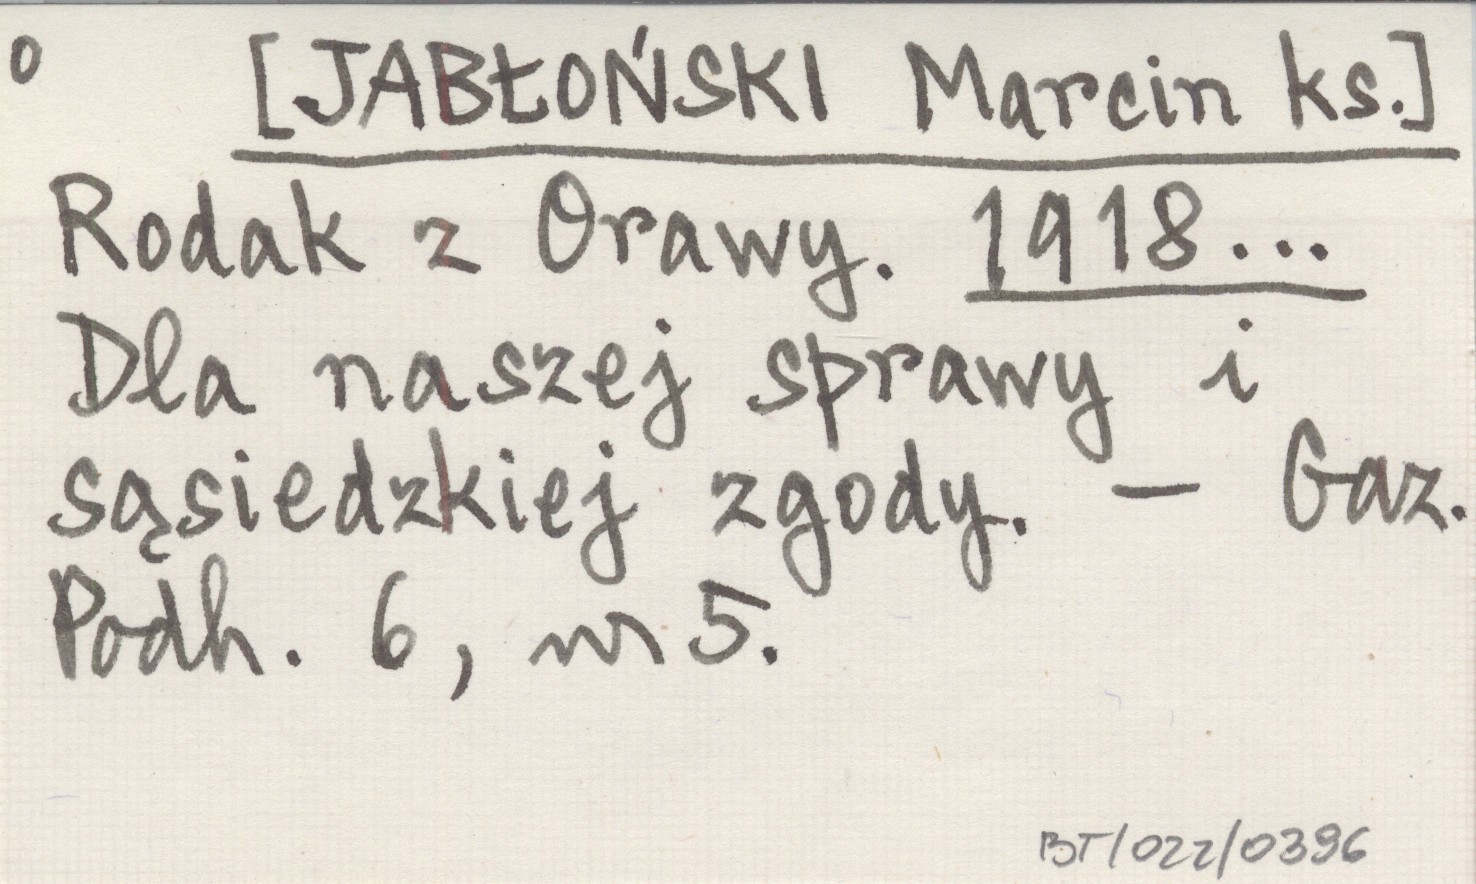 o [JABŁOŃSKI Marcin ks.]
Rodak z Orawy. 1918...
Dla naszej sprawy i
sąsiedzkiej zgody. — Gaz.
Podh. 6, nr 5.
BT/022/0396